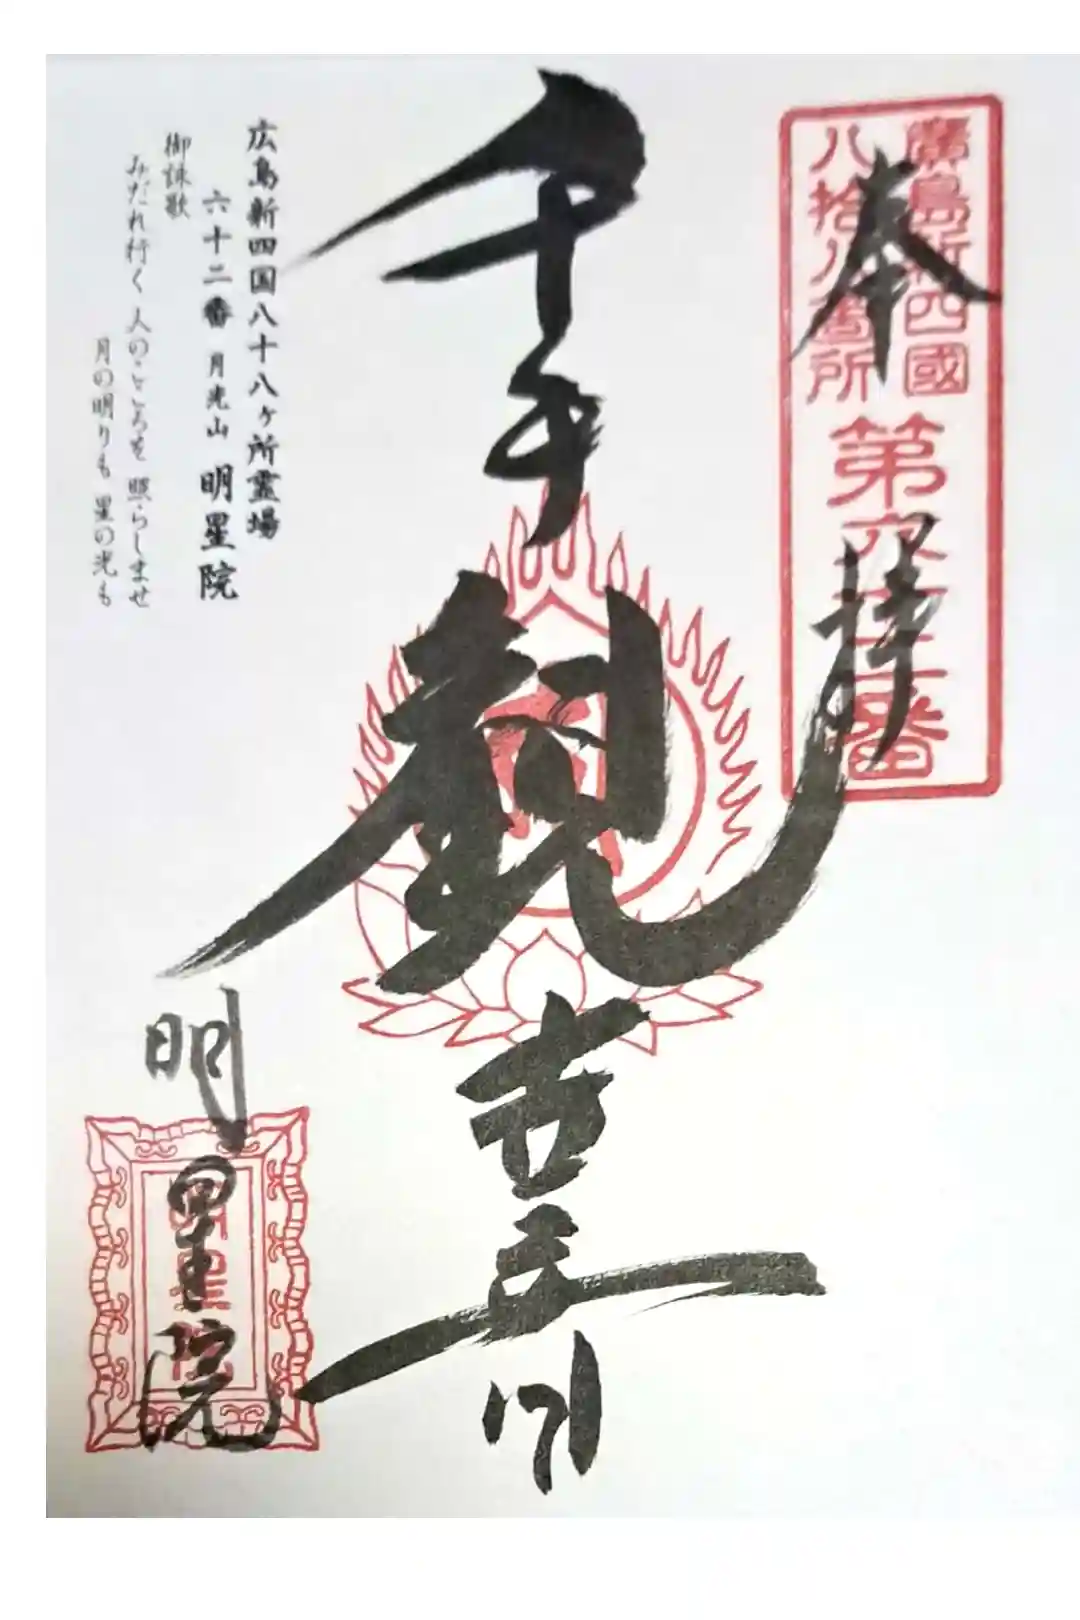 奉拝
廣島新四國
八拾八箇所
第六十二番
千手
観世音
明星院
広島新四国八十八ヶ所霊場
六十二番 月光山 明星院
御詠歌
みだれ行く 人のこころを 照らしませ
月の明りも 星の光も